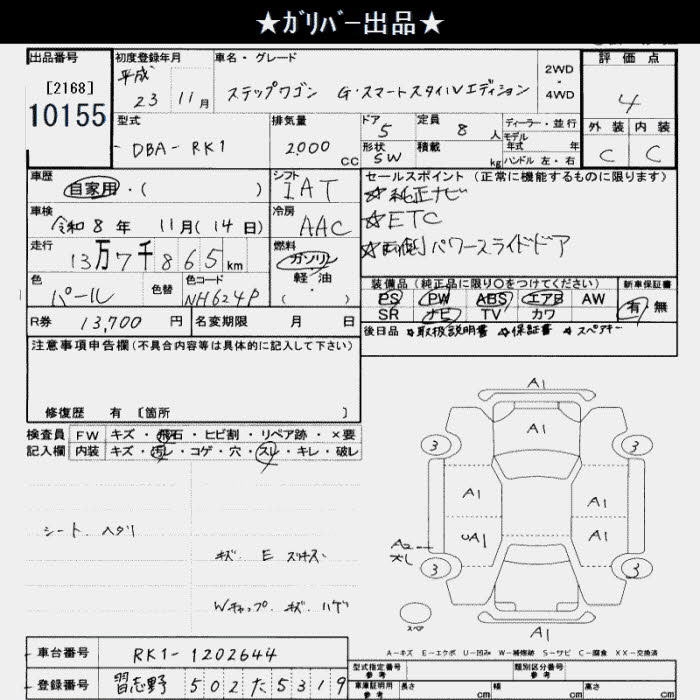 ★ｶﾞﾘﾊﾞｰ出品★
出品番号 初度登録年月 車名・グレード 評価点
[2168] 10155
平成 23 11月
ステップワゴン G・スマートスタイルVエディション
2WD・4WD
4
外装 内装
C C
型式 排気量 ドア 5 定員 8人 ディーラー・並行
DBA-RK1 2000cc 形状 SW 積載 kg モデル年式 年
ハンドル 左・右
車歴 自家用・( ) シフト IAT
セールスポイント (正常に機能するものに限ります)
☆純正ナビ
☆ETC
☆両側パワースライドドア
車検 令和8年 11月(14日) 冷房 AAC
走行 13万7千865km 燃料 ガソリン・軽油・( )
色 パール 色替 色コード NH624P
装備品(純正品に限り〇をつけてください) 新車保証書
PS PW ABS エアB AW 有・無
SR ナビ TV カワ
R券 13,700円 名変期限 月 日
後日品 ☆取扱説明書 ☆保証書 ☆スペアキー
注意事項申告欄(不具合内容等は具体的に記入して下さい)
修復歴 有 〔箇所 〕
検査員 FW キズ・飛石・ヒビ割・リペア跡・×要
記入欄 内装 キズ・汚レ・コゲ・穴・スレ・キレ・破レ
シート ヘタリ
キズ E スリキズ
Wキャップ キズ ハゲ
A1
A1
3 3
A1 A1
UA1 A1
A2
3 3
スペア
A1
A-キズ E-エクボ U-凹み W-補修跡 S-サビ C-腐食 XX-交換済
車台番号 RK1-1202644
登録番号 習志野 502 た 5319
型式指定番号 参考 類別区分番号 参考
車庫証明用 参考 長さ cm 幅 cm 高さ cm